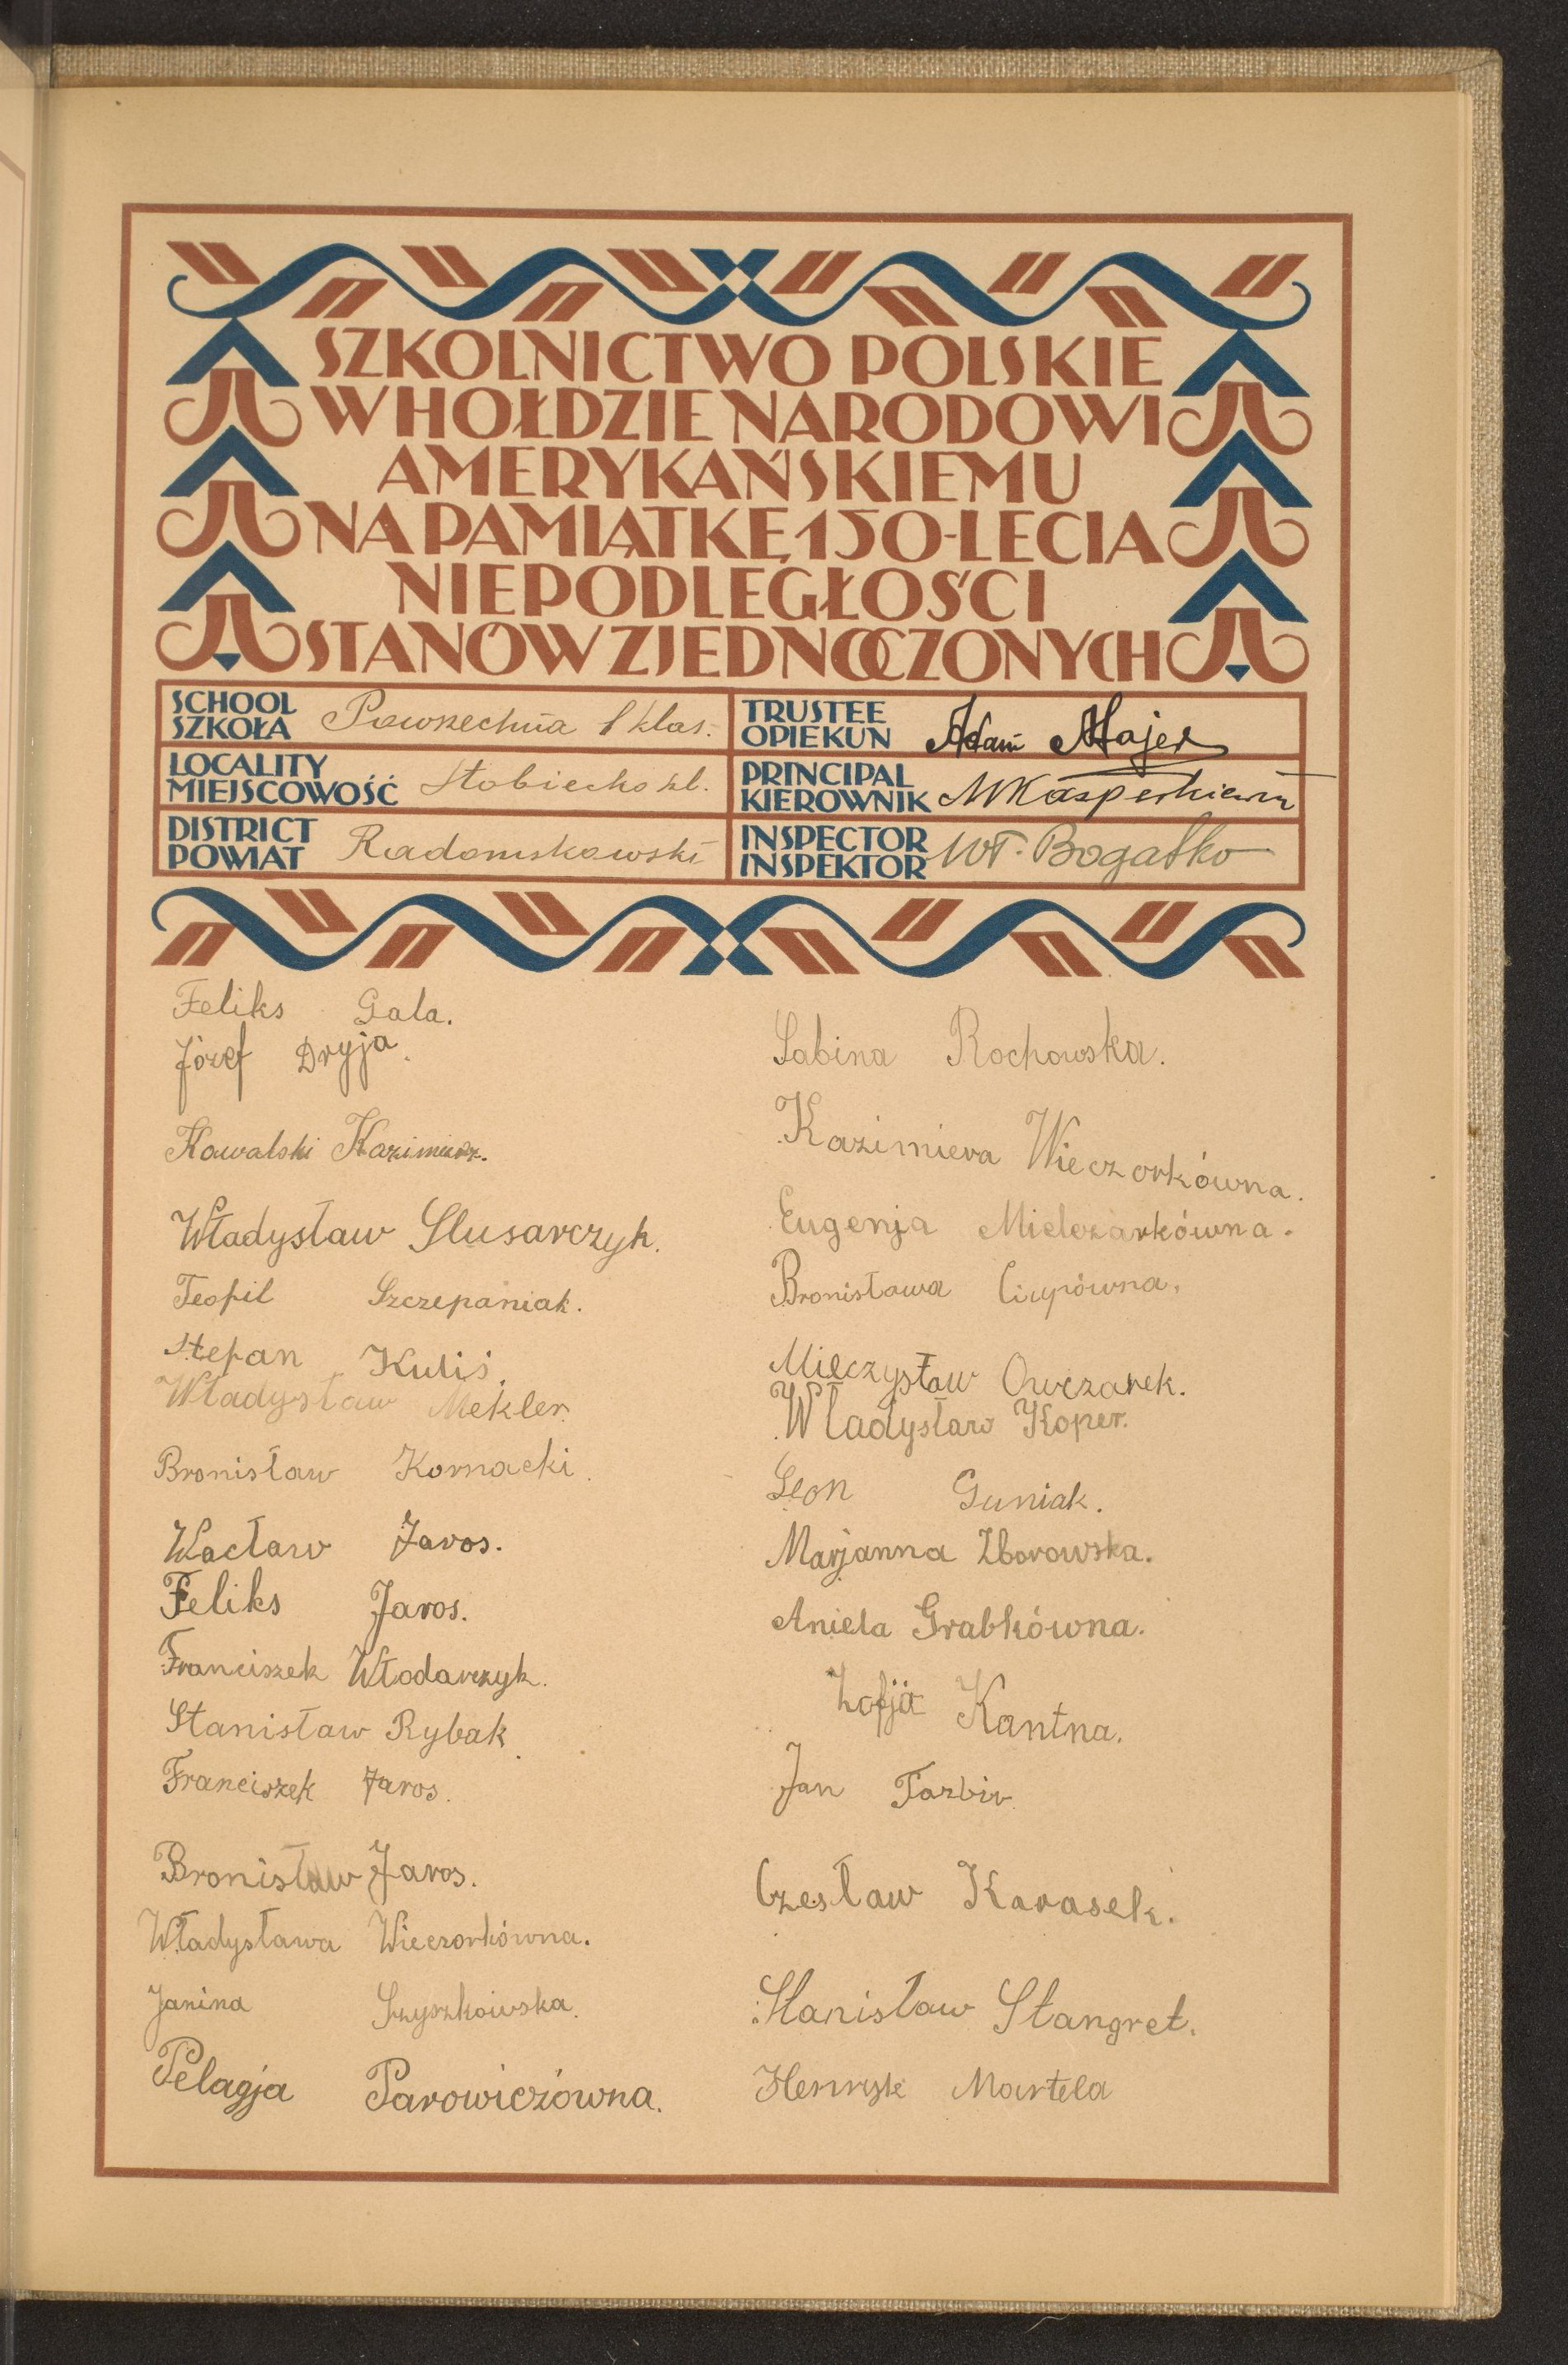 SZKOLNICTWO POLSKIE
W HOŁDZIE NARODOWI
AMERYKAŃSKIEMU
NA PAMIĄTKĘ 150-LECIA
NIEPODLEGŁOŚCI
STANÓW ZJEDNOCZONYCH
SCHOOL
SZKOŁA Powszechna 1 klas.
LOCALITY
MIEJSCOWOŚĆ Stobiecko
DISTRICT
POWIAT Radomskowski
TRUSTEE
OPIEKUN Adam Majer
PRINCIPAL
KIEROWNIK MKasperkiewicz
INSPECTOR
INSPEKTOR Wł. Bogatko
Feliks Gala.
Józef Dryja.
Kowalski Kazimierz.
Władysław Slusarczyk.
Teofil Szczepaniak.
Stefan Kuliś.
Władysław Mekler.
Bronisław Kornacki.
Wacław Jaros.
Feliks Jaros.
Franciszek Włodarczyk.
Stanisław Rybak.
Franciszek Jaros.
Bronisław Jaros.
Władysława Wieczorkówna.
Janina Szyszkowska.
Pelagja Parowiczówna.
Sabina Rochowska.
Kazimiera Wieczorkówna.
Eugenja Mielczarkówna.
Bronisława
Mieczysław Owczarek.
Władysław Koper.
Leon Guniak.
Marjanna Zborowska.
Aniela Grabkówna.
Zofja Kantna.
Jan
Czesław Karasek.
Stanisław Stangret.
Henryk Martela